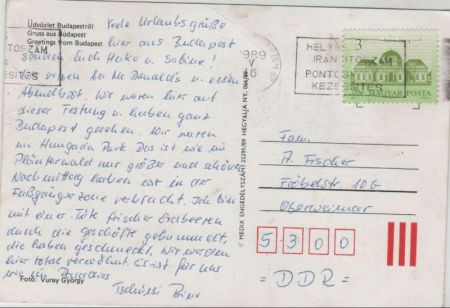 Üdvözlet Budapestről
Gruss aus Budapest
Greetings from Budapest
Viele Urlaubsgrüße
hier aus Budapest
senden Euch Heiko u. Sabine!
Wir sitzen bei Mc Donald's u. essen
Abendbrot. Wir waren hier auf
dieser Festung u. haben ganz
Budapest gesehen. Wir waren
im Hungaria Park. Das ist wie im
Plänterwald nur größer und schöner.
Nachmittag haben wir in der
Fußgängerzone verbracht. Ich bin
mit einer Tüte frischer Erdbeeren
durch die Geschäfte gebummelt,
die haben geschmeckt. Wir werden
hier total verwöhnt. Es ist für uns
wie im Paradies
Tschüssi
Foto: Vuray György
© MEDIX ENGEDÉLYSZÁM: 25291/89 HEGYALJA NY.
1989
V
16
HELYES
IRÁNYÍTÓSZÁM
PONTOS
KÉZBESÍTÉS
3
MAGYAR POSTA
Fam.
A. Fischer
Fröbelstr. 10G
Oberweimar
5300
= DDR =